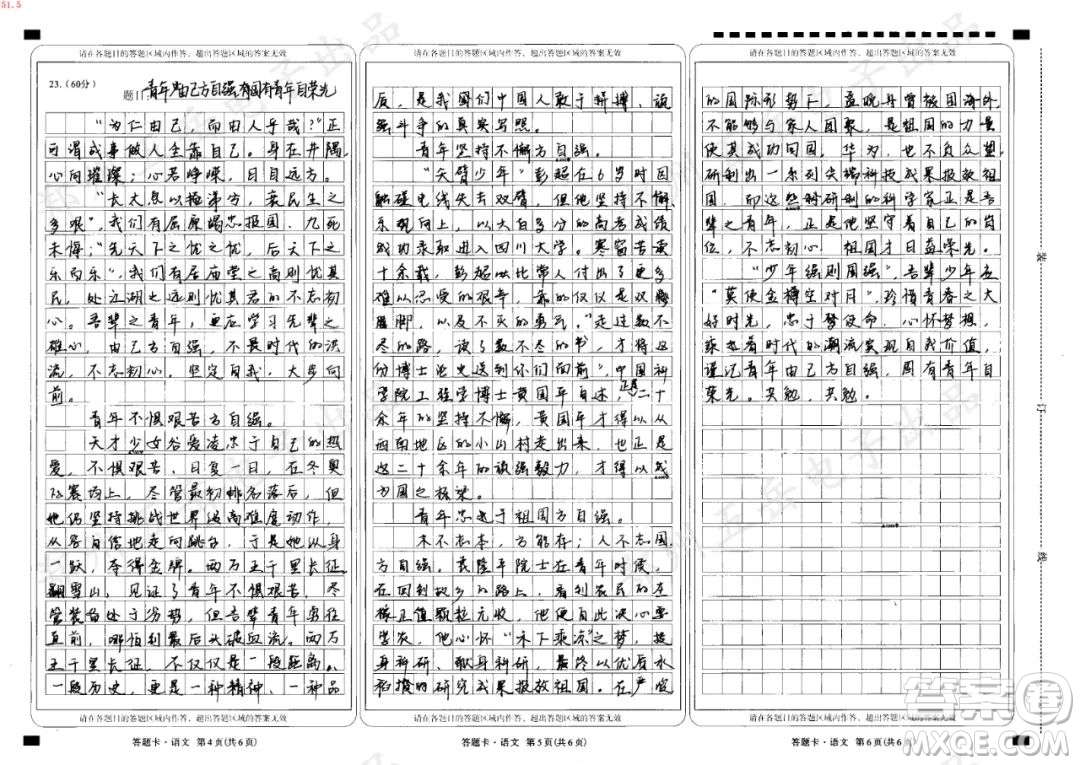 51.5
请在各题目的答题区域内作答，超出答题区域的答案无效
23.（60分）
题目:青年当由己方自强,有国有青年自荣光
“为仁由己，而由人乎哉？”正
可谓成事做人全靠自己。身在井隅，
心向璀璨；心若峥嵘，目自远方。
“长太息以掩涕兮，哀民生之
多艰”，我们有屈原竭忠报国，九死
未悔；“先天下之忧之忧，后天下之
乐而乐”，我们有居庙堂之高则忧其
民，处江湖之远则忧其君的不忘初
心。吾辈之青年，更应学习先辈之
雄心，由己方自强，不畏时代的洪
流，不忘初心，坚定自我，大步向
前。
青年不惧艰苦方自强。
天才少女谷爱凌忠于自己的热
爱，不惧艰苦、日复一日，在冬奥
比赛场上，尽管最初排名落后，但
她仍坚持挑战世界级高难度动作，
从容自信地走向跳台，于是她纵身
一跃，夺得金牌。两万五千里长征，
翻雪山，见证了青年不惧艰苦，尽
管装备处于劣势，但吾辈青年勇往
直前，哪怕到最后头破血流。两万
五千里长征，不仅仅是一段距离、
一段历史，更是一种精神、一种品
请在各题目的答题区域内作答，超出答题区域的答案无效
答题卡·语文 第4页(共6页)
请在各题目的答题区域内作答，超出答题区域的答案无效
质，是我们中国人敢于拼搏、顽
强斗争的真实写照。
青年坚持不懈方自强。
“无臂少年”彭超在6岁时因
触碰电线失去双臂，但他坚持不懈
乐观向上，以六百多分的高考成绩
成功录取进入四川大学。寒窗苦读
十余载，彭超比常人付出了更多
难以忍受的艰辛，靠的仅仅是双
脚，以及不灭的勇气。“走过数不
尽的路，读了数不尽的书，才将这
份博士论文送到你们面前”，中国科
学院工程学博士黄国平自述，二十
余年的坚持不懈，黄国平才得以从
西南地区的小山村走出来，也正是
这二十余年的顽强毅力，才得以成
为国之栋梁。
青年忠于祖国方自强。
木不忘本，方能存；人不忘国
方自强。袁隆平院士在青年时候，
在回到故乡的路上，看到农民的庄
稼正值颗粒无收，他便自此决心要
学农，他心怀“禾下乘凉”之梦，投
身科研、献身科研，最终以优质水
稻的研究成果报效祖国。在严峻
请在各题目的答题区域内作答，超出答题区域的答案无效
答题卡·语文 第5页(共6页)
请在各题目的答题区域内作答，超出答题区域的答案无效
的国际形势下，孟晚舟曾被困海外
不能够与家人团聚，是祖国的力量
使其成功回国。华为，也不负众望，
研制出一系列尖端科技成果报效祖
国，而这些科研研制的科学家正是吾
辈之青年，正是他坚守着自己的岗
位，不忘初心，祖国才日益荣光。
“少年强则国强”，吾辈少年应
“莫使金樽空对月”，珍惜青春之大
好时光，忠于梦使命，心怀梦想，
乘着时代的潮流实现自我价值，
谨记青年由己方自强，国有青年自
荣光。共勉，共勉。
请在各题目的答题区域内作答，超出答题区域的答案无效
答题卡·语文 第6页(共6
装
订
线
答案圈
MXQE.COM